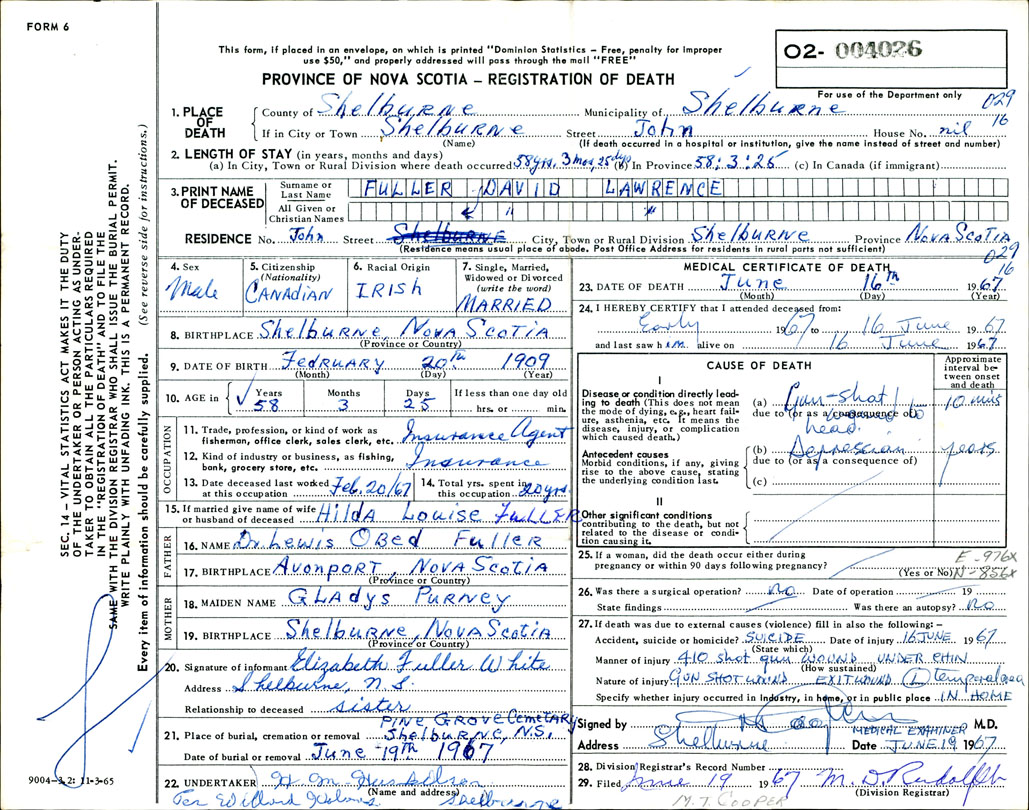 FORM 6
This form, if placed in an envelope, on which is printed "Dominion Statistics – Free, penalty for improper
use $50," and properly addressed will pass through the mail "FREE"
PROVINCE OF NOVA SCOTIA – REGISTRATION OF DEATH
02- 004026
For use of the Department only
029
16
1. PLACE OF DEATH
County of Shelburne Municipality of Shelburne
If in City or Town Shelburne Street John House No. nil
(Name) (If death occurred in a hospital or institution, give the name instead of street and number)
2. LENGTH OF STAY (in years, months and days)
(a) In City, Town or Rural Division where death occurred 58 yrs. 3 mos, 25 days (b) In Province 58:3:25 (c) In Canada (if immigrant)
3. PRINT NAME OF DECEASED
Surname or Last Name FULLER DAVID LAWRENCE
All Given or Christian Names
RESIDENCE No. John Street Shelburne City, Town or Rural Division Shelburne Province Nova Scotia
(Residence means usual place of abode. Post Office Address for residents in rural parts not sufficient)
029
16
4. Sex
Male
5. Citizenship
(Nationality)
CANADIAN
6. Racial Origin
IRISH
7. Single, Married,
Widowed or Divorced
(write the word)
MARRIED
8. BIRTHPLACE Shelburne, Nova Scotia
(Province or Country)
9. DATE OF BIRTH February 20th 1909
(Month) (Day) (Year)
10. AGE in
Years
58
Months
3
Days
25
If less than one day old
hrs. or min.
OCCUPATION
11. Trade, profession, or kind of work as
fisherman, office clerk, sales clerk, etc. Insurance Agent
12. Kind of industry or business, as fishing,
bank, grocery store, etc. Insurance
13. Date deceased last worked
at this occupation Feb. 20/67
14. Total yrs. spent in
this occupation 20 yrs
15. If married give name of wife
or husband of deceased Hilda Louise Fuller
FATHER
16. NAME Dr. Lewis Obed Fuller
17. BIRTHPLACE Avonport, Nova Scotia
(Province or Country)
MOTHER
18. MAIDEN NAME Gladys Purney
19. BIRTHPLACE Shelburne, Nova Scotia
(Province or Country)
20. Signature of informant Elizabeth Fuller White
Address Shelburne, N.S.
Relationship to deceased sister
21. Place of burial, cremation or removal Pine Grove Cemetary
Shelburne, N.S.
Date of burial or removal June 19th 1967
22. UNDERTAKER
(Name and address)
Per Willard
Shelburne
MEDICAL CERTIFICATE OF DEATH
23. DATE OF DEATH June 16th 1967
(Month) (Day) (Year)
24. I HEREBY CERTIFY that I attended deceased from:
Early 1967 to 16 June 1967
and last saw him alive on 16 June 1967
CAUSE OF DEATH
Approximate
interval be-
tween onset
and death
I
Disease or condition directly lead-
ing to death (This does not mean
the mode of dying, e.g., heart fail-
ure, asthenia, etc. It means the
disease, injury, or complication
which caused death.)
(a) Gun-shot 10 mins
due to (or as a consequence of)
head.
Antecedent causes
Morbid conditions, if any, giving
rise to the above cause, stating
the underlying condition last.
(b) Depression years
due to (or as a consequence of)
(c)
II
Other significant conditions
contributing to the death, but not
related to the disease or condi-
tion causing it.
25. If a woman, did the death occur either during
pregnancy or within 90 days following pregnancy?
(Yes or No)
E-976X
N-856X
26. Was there a surgical operation? No Date of operation 19
State findings Was there an autopsy? No
27. If death was due to external causes (violence) fill in also the following: –
Accident, suicide or homicide? SUICIDE Date of injury 16 JUNE 1967
(State which)
Manner of injury 410 shot gun WOUND UNDER CHIN
(How sustained)
Nature of injury GUN SHOT WOUND EXIT WOUND (L) temporal area
Specify whether injury occurred in Industry, in home, or in public place IN HOME
Signed by M.D.
MEDICAL EXAMINER
Address Shelburne Date JUNE 19 1967
28. Division Registrar's Record Number
29. Filed June 19 1967
(Division Registrar)
M. J. COOPER
SEC. 14 – VITAL STATISTICS ACT MAKES IT THE DUTY
OF THE UNDERTAKER OR PERSON ACTING AS UNDER-
TAKER TO OBTAIN ALL THE PARTICULARS REQUIRED
IN THE "REGISTRATION OF DEATH" AND TO FILE THE
SAME WITH THE DIVISION REGISTRAR WHO SHALL ISSUE THE BURIAL PERMIT.
WRITE PLAINLY WITH UNFADING INK. THIS IS A PERMANENT RECORD.
Every item of information should be carefully supplied. (See reverse side for instructions.)
9004-3.2: 11-3-65